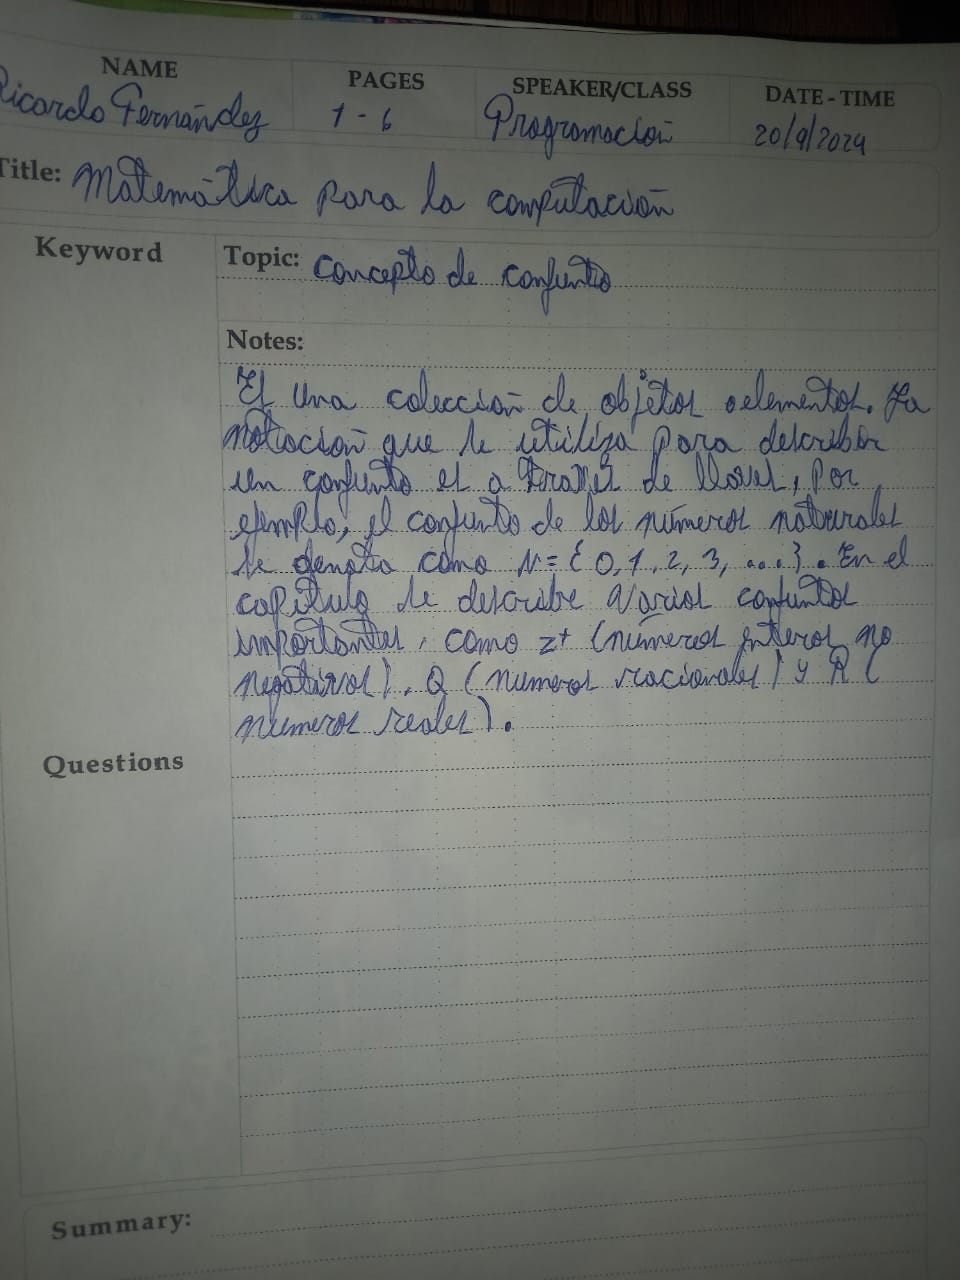 NAME PAGES SPEAKER/CLASS DATE - TIME
Ricardo Fernández 1 - 6 Programación 20/9/2024
Title: Matemática para la computación
Keyword
Topic: Concepto de conjunto
Notes:
Es una colección de objetos o elementos. La
notación que se utiliza para describir
un conjunto es a través de llaves, por
ejemplo, el conjunto de los números naturales
se denota como N = { 0, 1, 2, 3, ....}. En el
capítulo se describe varios conjuntos
importantes, como z+ (números enteros no
negativos), Q (numeros racionales) y R (
números reales).
Questions
Summary: